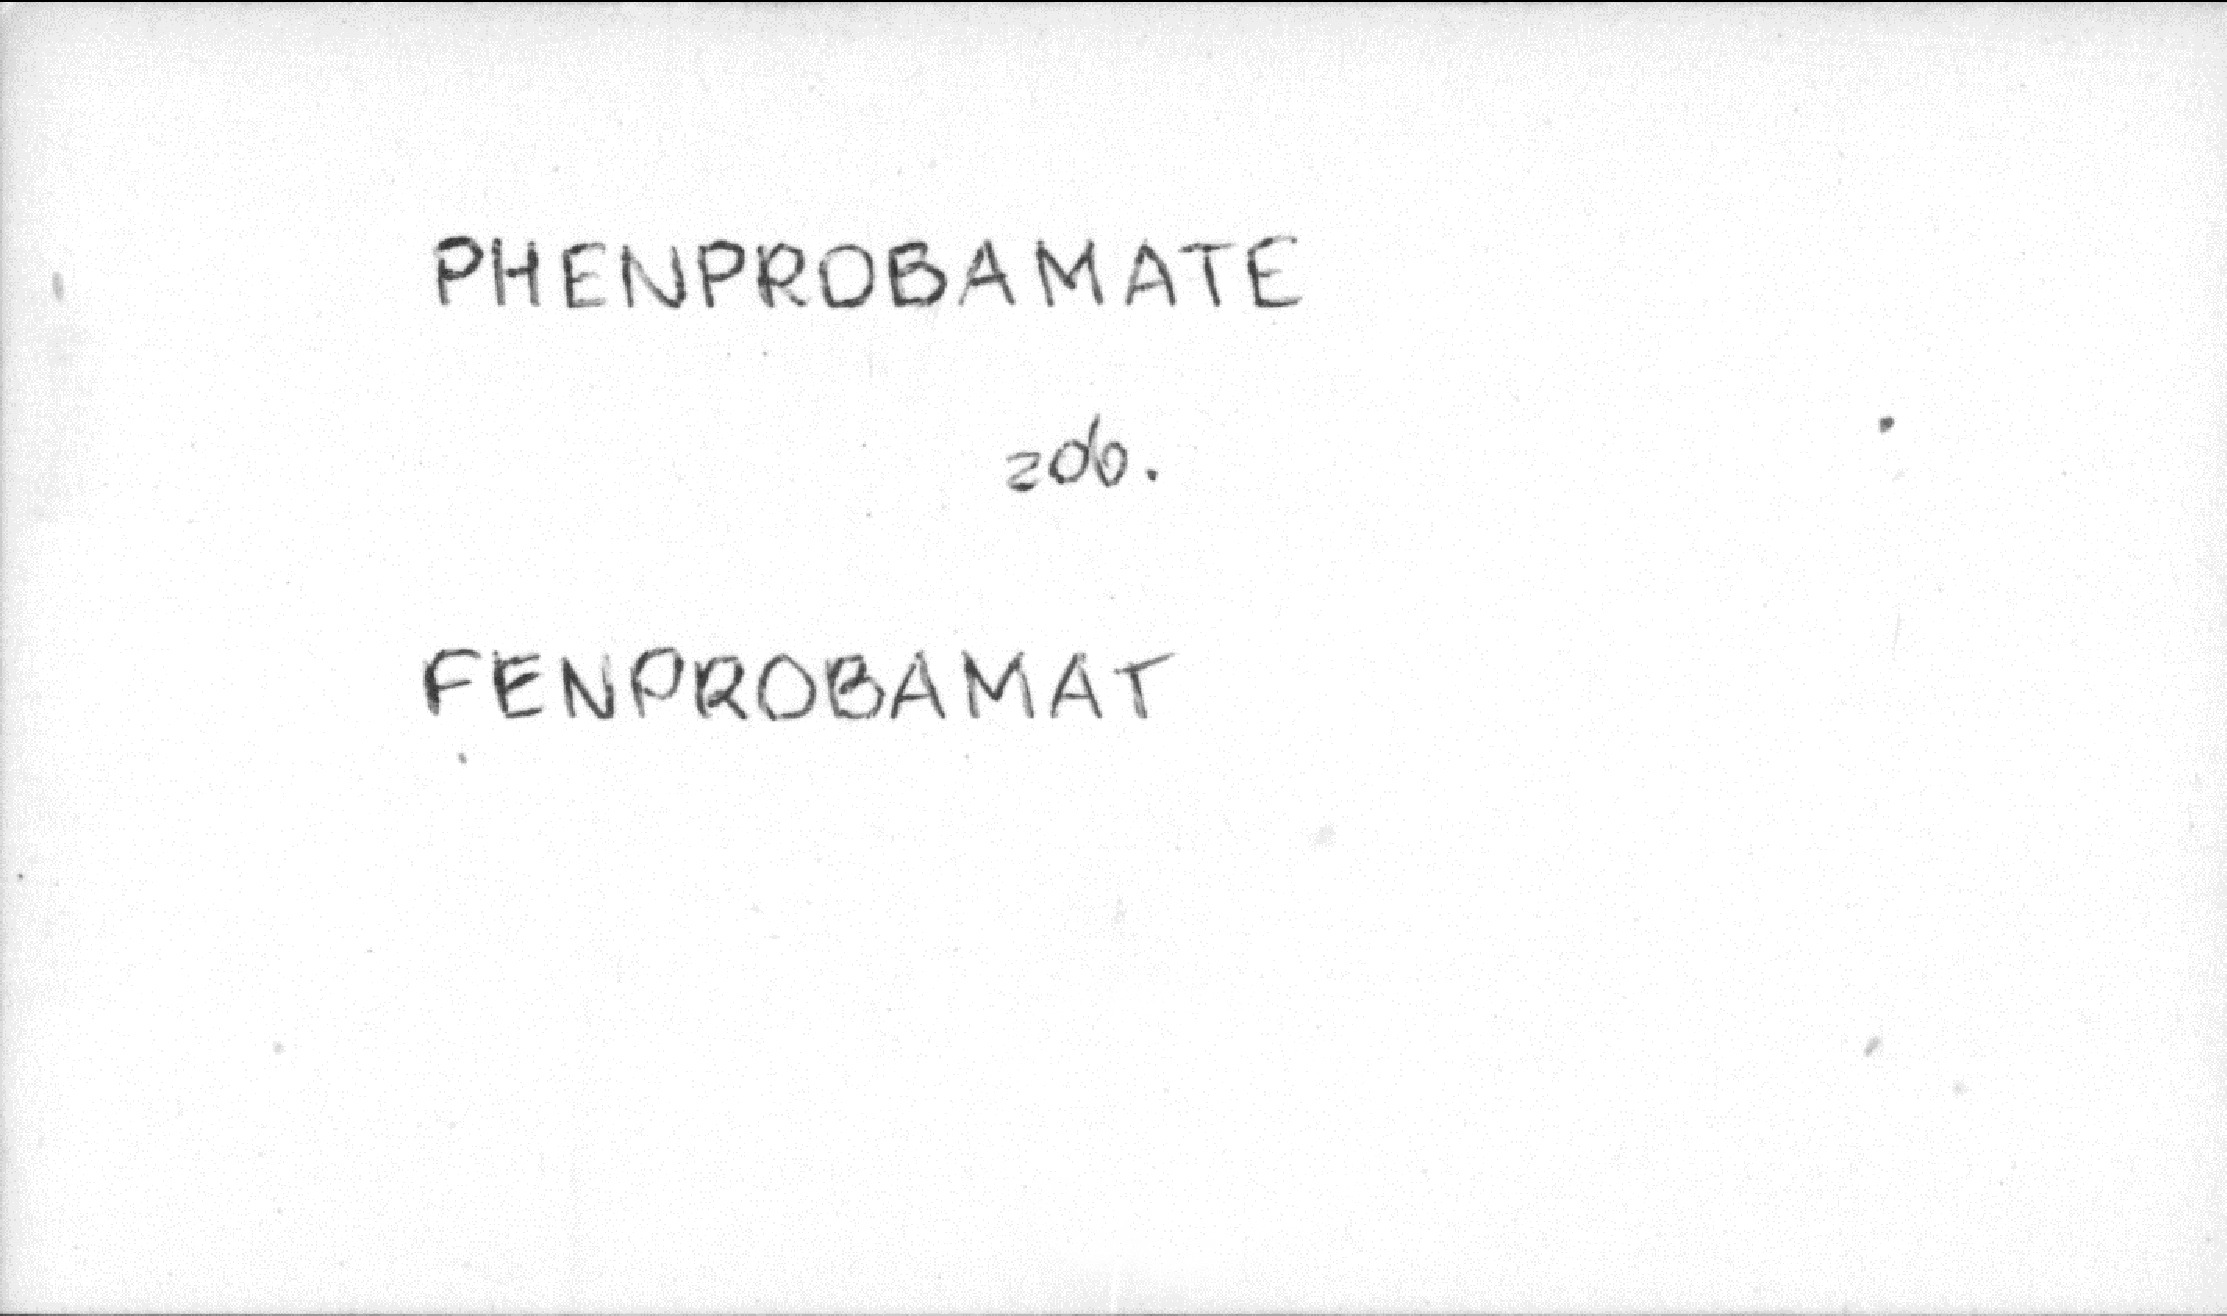 PHENPROBAMATE
zob.
FENPROBAMAT